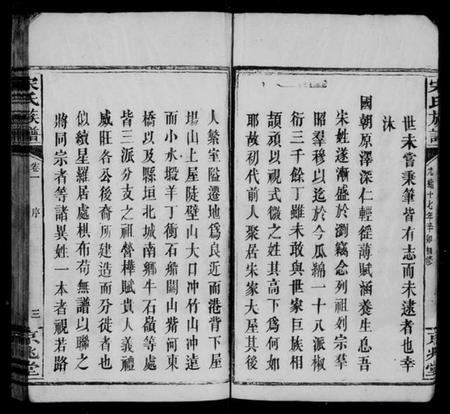 宋氏族譜
光緒十七年辛卯
世未嘗秉筆皆有志而未逮者也幸
沐
國朝厚澤深仁輕徭薄賦涵養生息吾
朱姓遂漸盛於瀏竊念列祖列宗羣
昭羣穆以迄於今瓜綿一十八派椒
衍三千餘丁雖未敢與世家巨族相
頡頏以視式微之姓其高下為何如
耶故初代前人聚居朱家大屋其後
京兆堂
人繁室隘遷地為良近而港背下屋
塲山上屋陡壁山大口冲竹山冲遠
而小水塅羊丁衝石茄關山觜河東
橋以及縣垣北城南鄉牛石嶺等處
皆三派分支之祖督樺賦貴人義禮
威旺各公後裔所建造而分徙者也
似續星羅居處棋布苟無譜以聯之
將同宗者等諸異姓一本者視若路
宋氏族譜
卷一
序
三
京兆堂